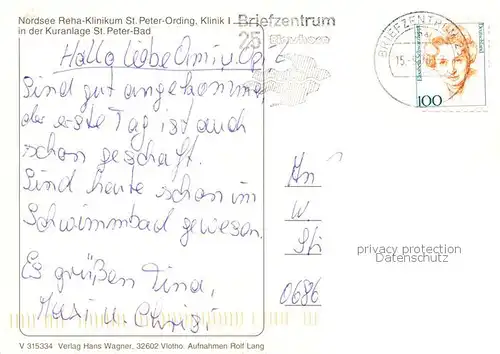 Nordsee Reha-Klinikum St. Peter-Ording, Klinik I
in der Kuranlage St. Peter-Bad
Briefzentrum
25
BRIEFZENTRUM
Deutschland
100
Hallo liebe Omi u. Opi
Sind gut angekommen
der erste Tag ist auch
schon geschafft.
Sind heute schon im
Schwimmbad gewesen.
Es grüßen Tina,
Maxi u. Christ
An
W.
Sti
0686
privacy protection
Datenschutz
V 315334 Verlag Hans Wagner, 32602 Vlotho. Aufnahmen Rolf Lang